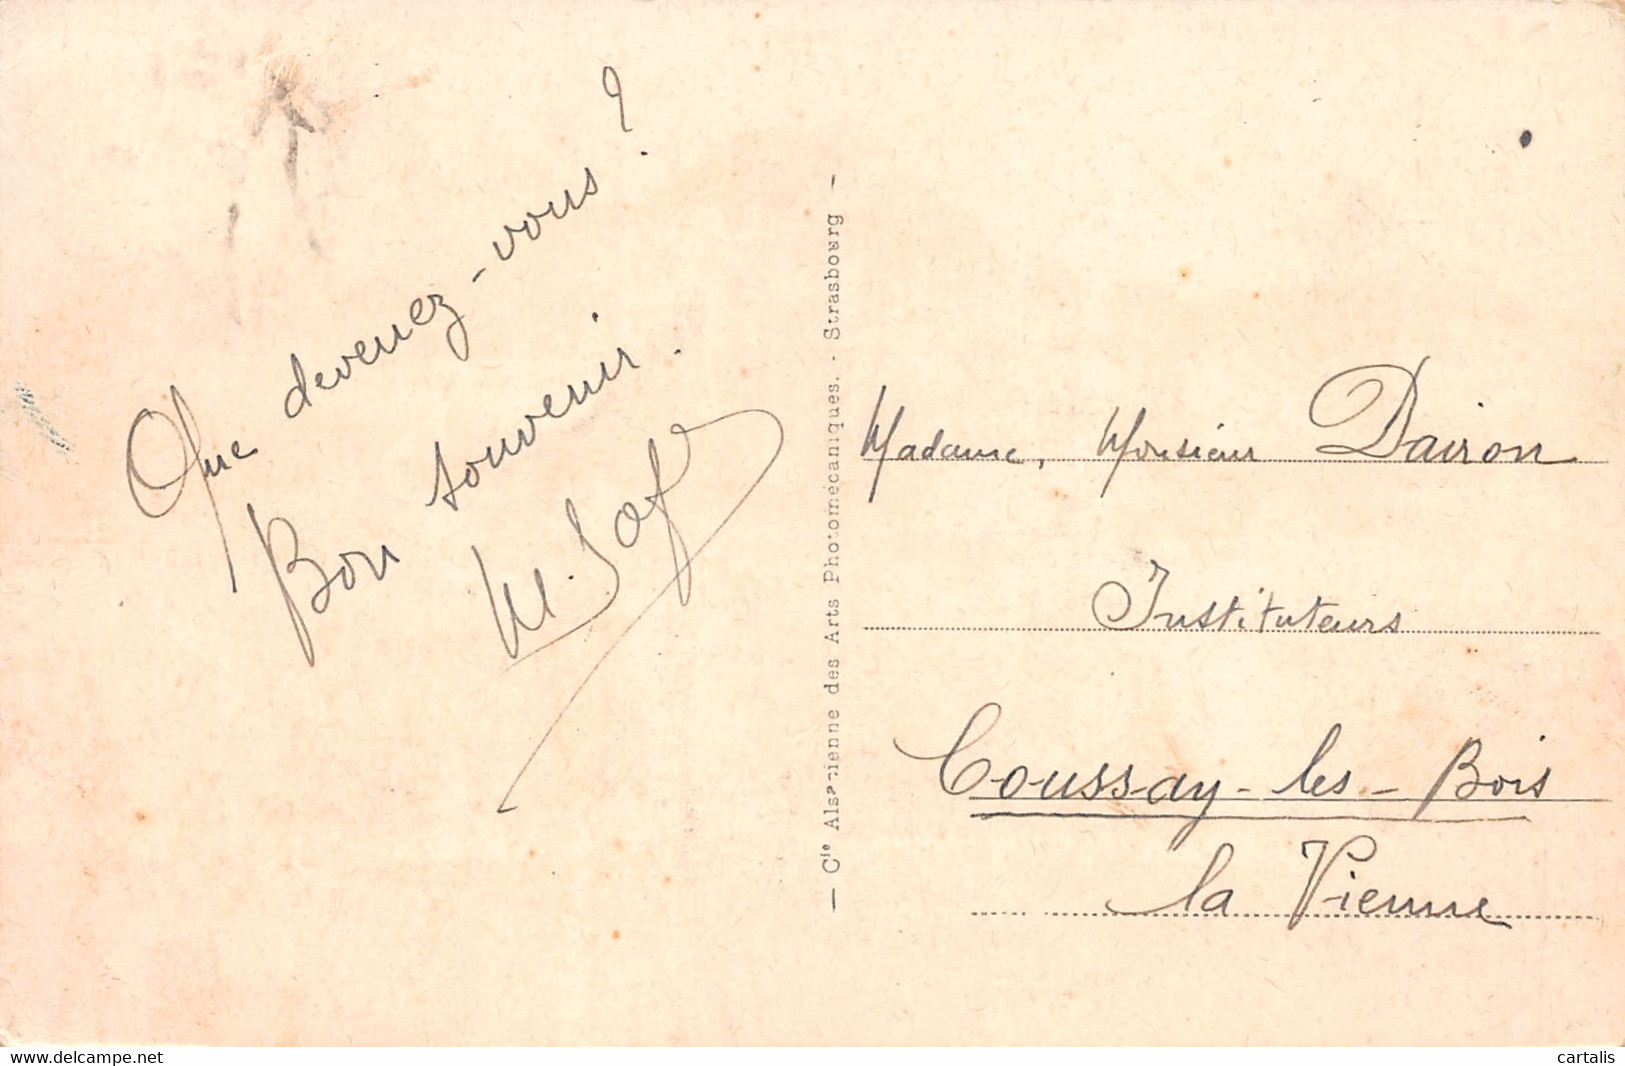 Que devenez-vous ?
Bon souvenir.
— Cie Alsacienne des Arts Photomécaniques. - Strasbourg —
Madame, Monsieur Dairon
Instituteurs
Coussay-les-Bois
la Vienne
www.delcampe.net
cartalis